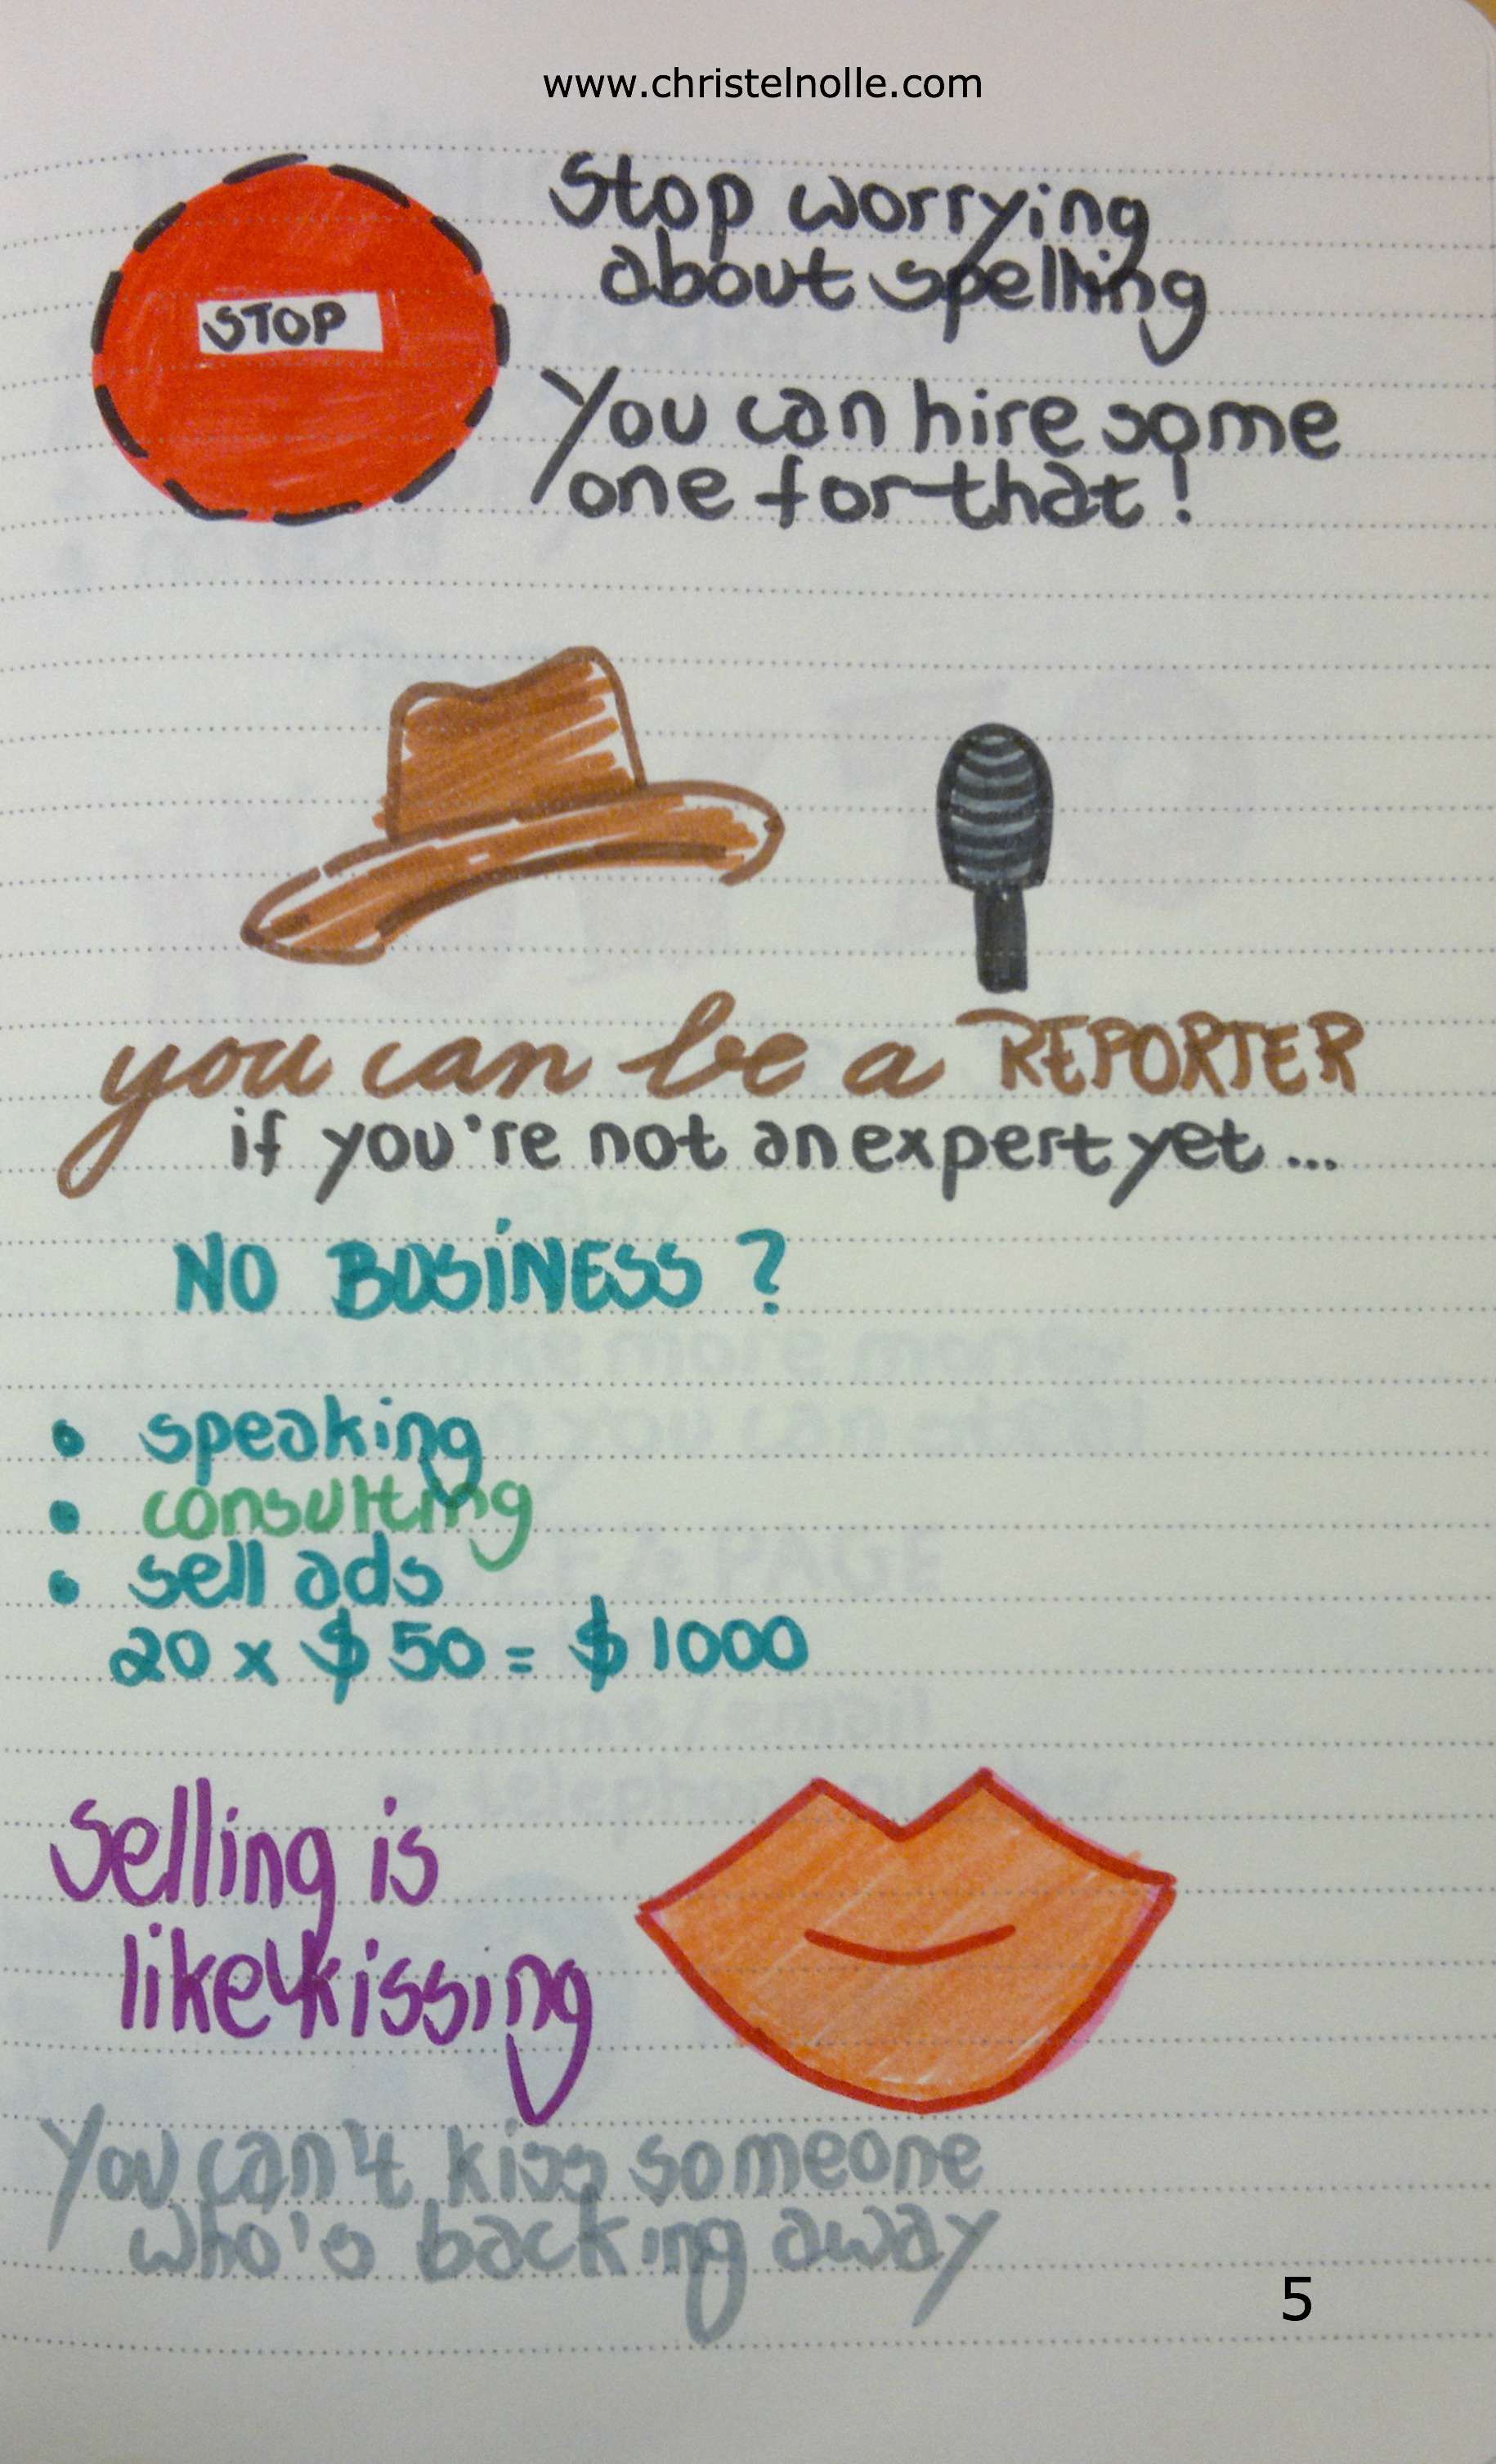 www.christelnolle.com
Stop worrying
about spelling
STOP
You can hire some
one for that!
you can be a REPORTER
if you're not an expert yet...
NO BUSINESS ?
• speaking
• consulting
• sell ads
20 x $ 50 = $ 1000
Selling is
like kissing
You can't kiss someone
who's backing away
5